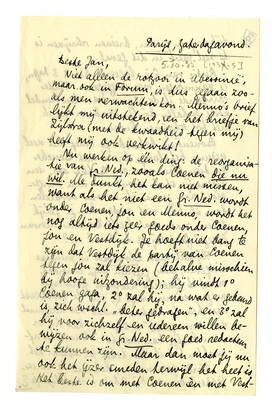 Parijs, Zaterdagavond.
5.10.35
Beste Jan,
Niet alleen de rotzooi in Abessinië,
maar ook in Forum, is dus gedaan zoo-
als men verwachten kon. Menno's brief
lijkt mij uitstekend, en het briefje van
Zijlstra (met de kwaadheid tegen mij)
heeft mij ook verkwikt!
Nu werken op één ding: de reorganisa-
tie van Gr. Ned., zooals Coenen die nu
wil. Me dunkt, het kan niet missen,
want als het niet een Gr. Ned. wordt
onder Coenen, jou en Menno, wordt het
nog altijd iets zeer goeds onder Coenen,
jou en Vestdijk. Je hoeft niet bang te
zijn dat Vestdijk de partij van Coenen
tegen jou zal kiezen (behalve misschien
bij hooge uitzondering); hij vindt 1º
Coenen gaga, 2º zal hij, na wat er gebeurd
is, zich wschl. "beter gedragen", en 3º zal
hij voor zichzelf en iedereen willen be-
wijzen ook in Gr. Ned. een goed redacteur
te kunnen zijn. Maar dan moet jij nu
ook het ijzer smeden terwijl het heet is.
Het beste is om met Coenen én met Vest-